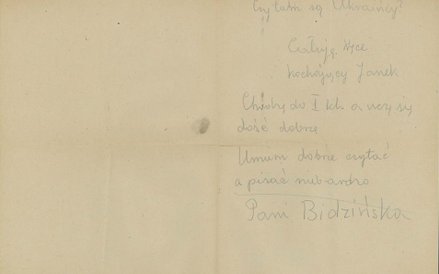 Czy tam są Ukraińcy?
Całuję ręce
kochający Janek
Chodzę do I kl. a uczę się
dość dobrze
Umiem dobrze czytać
a pisać nie bardzo
Pani Bidzińska